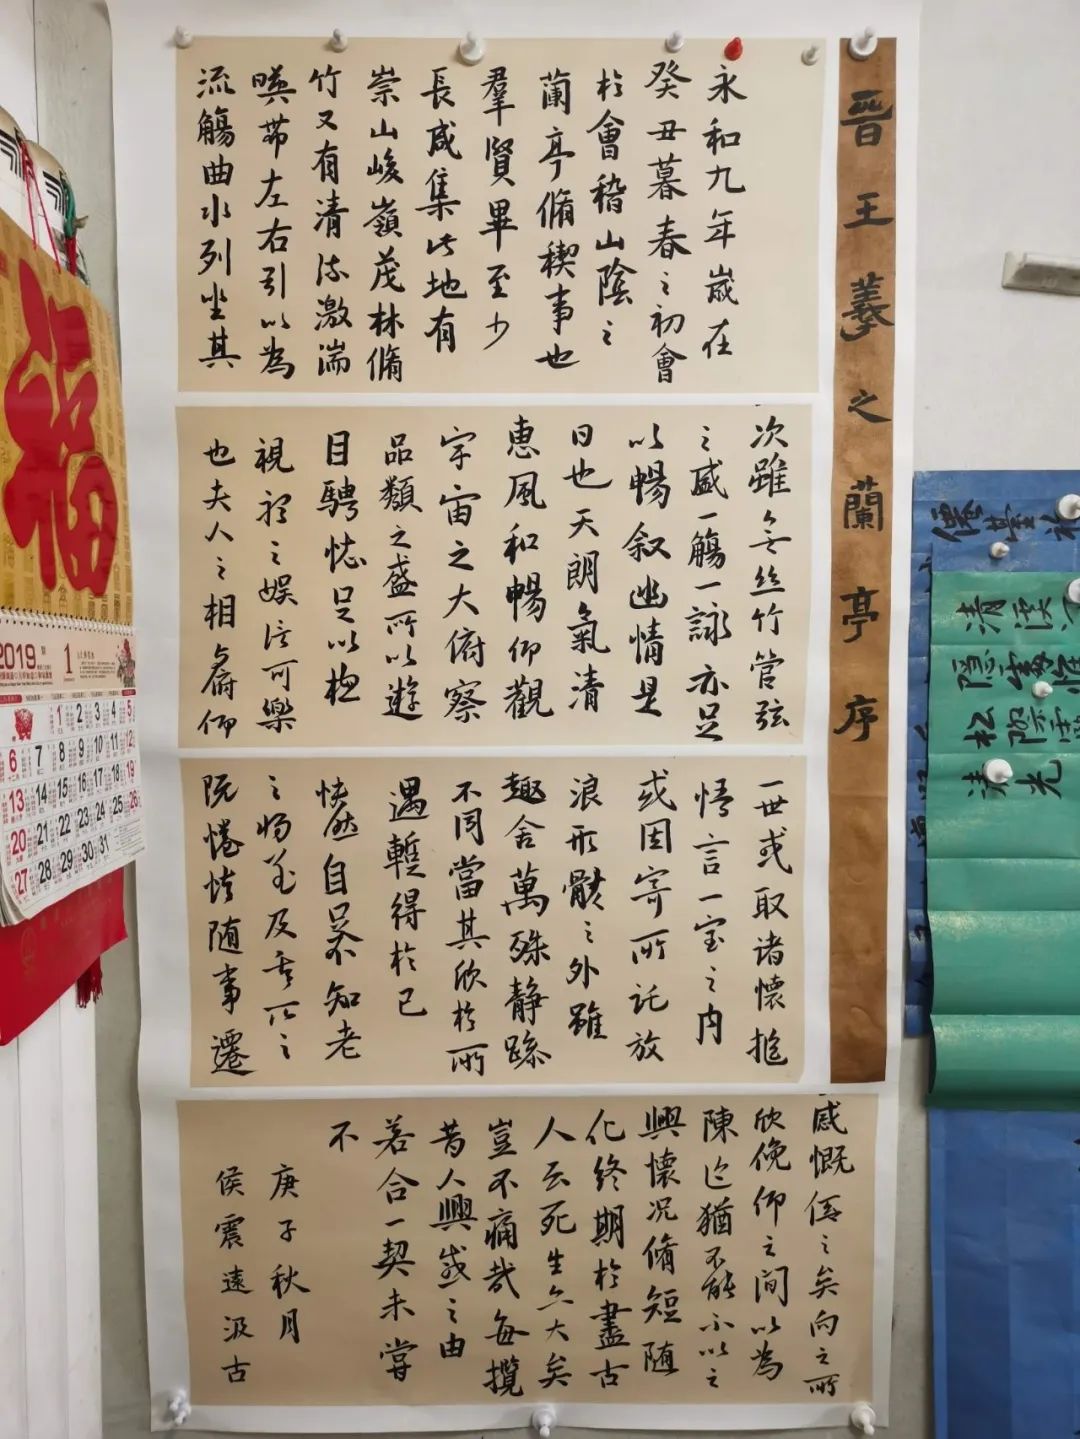 晉王羲之蘭亭序
永和九年歲在
癸丑暮春之初會
於會稽山陰之
蘭亭脩稧事也
羣賢畢至少
長咸集此地有
崇山峻嶺茂林脩
竹又有清流激湍
暎帶左右引以為
流觴曲水列坐其
次雖無絲竹管弦
之盛一觴一詠亦足
以暢叙幽情是
日也天朗氣清
惠風和暢仰觀
宇宙之大俯察
品類之盛所以遊
目騁懷足以極
視聽之娛信可樂
也夫人之相與俯仰
一世或取諸懷抱
悟言一室之內
或因寄所託放
浪形骸之外雖
趣舍萬殊靜躁
不同當其欣於所
遇暫得於己
怏然自足不知老
之將至及其所之
既惓情隨事遷
感慨係之矣向之所
欣俛仰之間以為
陳迹猶不能不以之
興懷況脩短隨
化終期於盡古
人云死生亦大矣
豈不痛哉每攬
昔人興感之由
若合一契未嘗
不
庚子秋月
侯震遠汲古
福
2019
1
1 2 3 4 5
6 7 8 9 10 11 12
13 14 15 16 17 18 19
20 21 22 23 24 25 26
27 28 29 30 31
清溪
隱處惟
松際露
清光